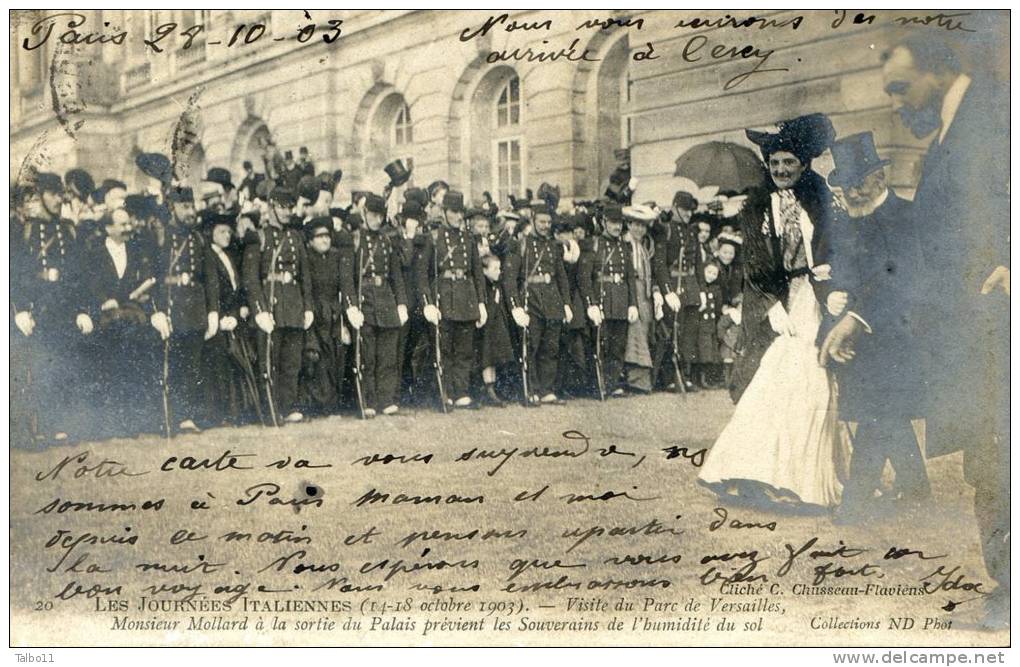 Paris 28-10-03
Nous vous écrirons dès notre
arrivée à Cercy.
Notre carte va vous surprendre, ns
sommes à Paris maman et moi
depuis ce matin et pensons repartir dans
la nuit. Nous espérons que vous avez fait un
bon voyage. Nous vous embrassons bien fort.
Cliché C. Chusseau-Flaviens
20 LES JOURNÉES ITALIENNES (14-18 octobre 1903). — Visite du Parc de Versailles,
Monsieur Mollard à la sortie du Palais prévient les Souverains de l'humidité du sol Collections ND Phot
Talbo11
http://www.delcampe.net